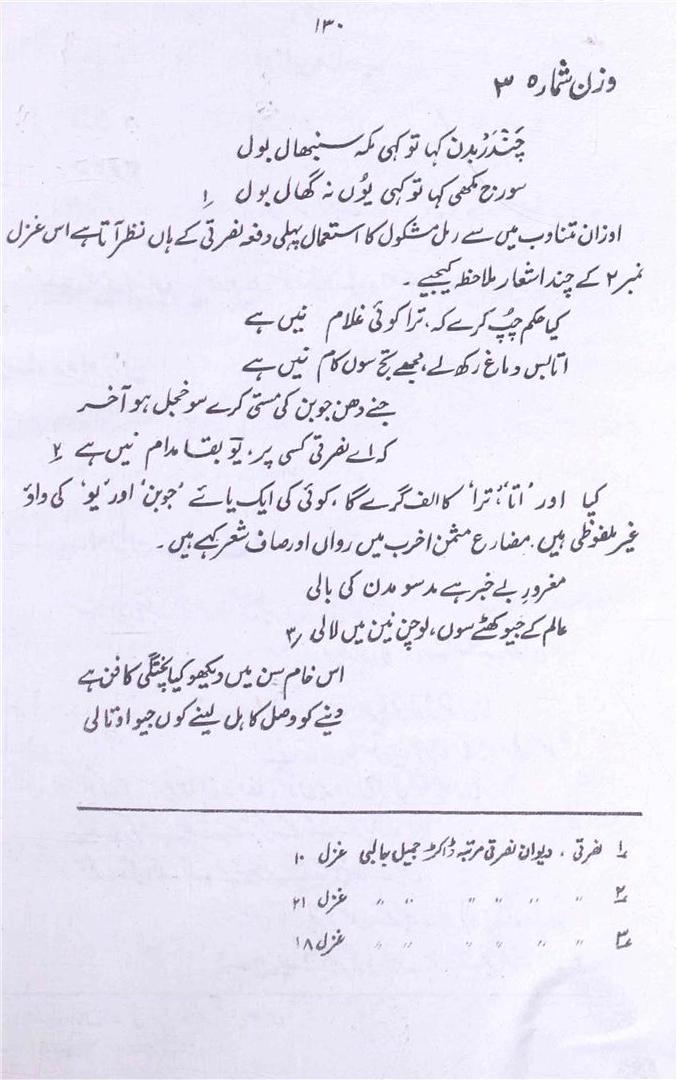 ۱۳۰
وزن شمارہ ۳
چَندَر بدن کہا تو کہی مکہ سنبھال بول
سورج مکھی کہا تو کہی یوُں نہ گھال بول ۱؎
اوزان متناوب میں سے رمل مشکول کا استعمال پہلی دفعہ نصرتی کے ہاں نظر آتا ہے اس غزل
نمبر ۲ کے چند اشعار ملاحظہ کیجیے ۔
کیا حکم چپُ کرے کہ، ترا کوئی غلام نیں ہے
اتا بس دماغ رکھ لے، مجھے تج سوں کام نیں ہے
جنے دھن جوبن کی مستی کرے سو خجل ہو آخر
کہ اے نصرتی کسی پر، یوَ بقا مدام نیں ہے ۲؎
کیا اور 'اتا'، 'ترا' کا الف گرے گا، کوئی کی ایک یائے 'جوبن' اور 'یو' کی واؤ
غیر ملفوظی ہیں. مضارع مثمن اخرب میں رواں اور صاف شعر کہے ہیں ۔
مغرورِ بے خبر ہے مد سو مدن کی بالی
عالم کے جیو کھٹے سوں، لوچن نین میں لالی ۳؎
اس خام سِن میں دیکھو کیا پختگی کا فن ہے
دینے کو وصل کاہل لینے کوں جیو اوتالی
۱؎ نصرتی ، دیوان نصرتی مرتبہ ڈاکٹر جمیل جالبی غزل ۱۰
۲؎ " " " " " " غزل ۲۱
۳؎ " " " " " " غزل ۱۸